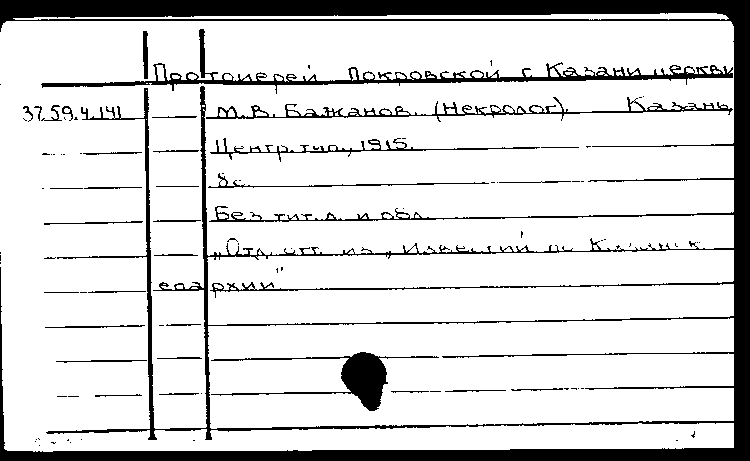 Протоиерей Покровской г. Казани церкви
37.59.4.141 М.В. Бажанов. (Некролог). Казань,
Центр. тип., 1915.
8 с.
Без тит. л. и обл.
„Отд. отт. из „Известий по Казанск.
епархии"